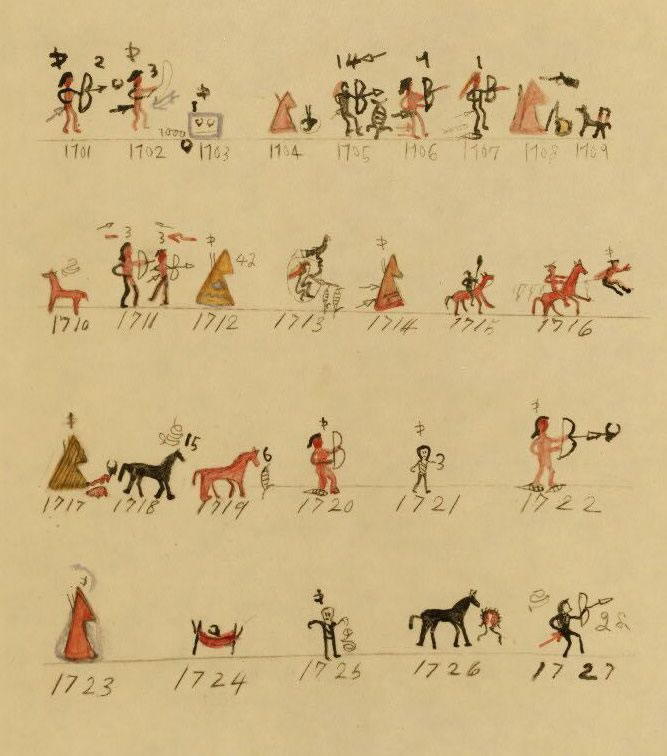 2 3 1000 14 4 1
1701 1702 1703 1704 1705 1706 1707 1708 1709
3 3 42
1710 1711 1712 1713 1714 1715 1716
15 6 3
1717 1718 1719 1720 1721 1722
1723 1724 1725 1726 1727